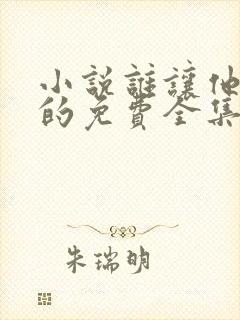 小说誰讓他
的免費全集
朱瑞明